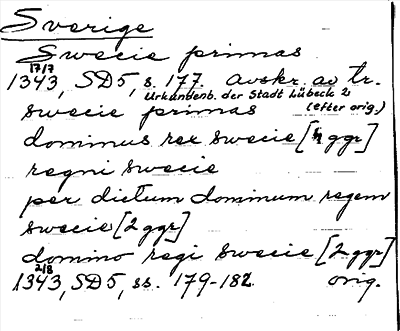 Sverige
Swecie primas
17/7
1343, SD5, s. 177. Avskr. av tr.
Urkundenb. der Stadt Lübeck 2
swecie primas (efter orig.)
dominus rex swecie [4 ggr]
regni swecie
per dictum dominum regem
swecie [2 ggr]
domino regi swecie [2 ggr]
2/8
1343, SD5, ss. 179-182. orig.